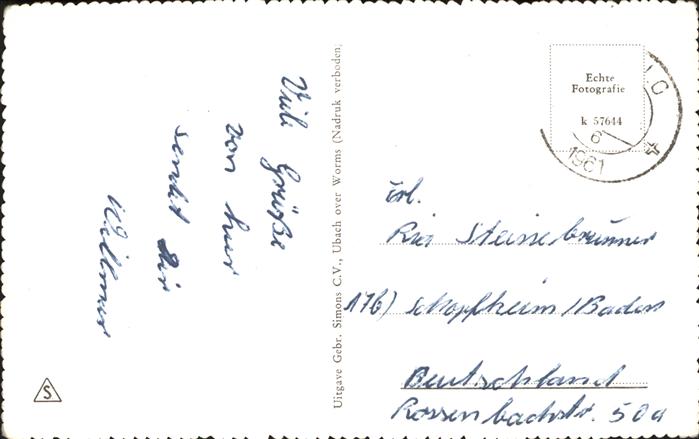 Viele Grüße
von hier
sendet Dir
Uitgave Gebr. Simons C.V., Ubach over Worms (Nadruk verboden)
Echte
Fotografie
k 57644
6
1961
Frl.
Ria Steinebrunner
17b) Schopfheim/Baden
Deutschland
Rossenbachstr. 50a
S